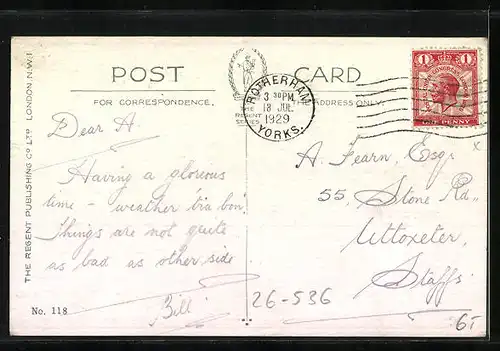 POST CARD
FOR CORRESPONDENCE.
THE ADDRESS ONLY.
THE
REGENT
SERIES
ROTHERHAM
3 30 PM
18 JUL
1929
YORKS.
1 1
ONE PENNY
THE REGENT PUBLISHING CO LTD LONDON, N.W.1
Dear A.
Having a glorious
time - weather 'bia bon'.
Things are not quite
as bad as other side
Bill
A. Fearn, Esqr
55, Stone Rd.,
Uttoxeter,
Staffs.
No. 118
26-536
6T